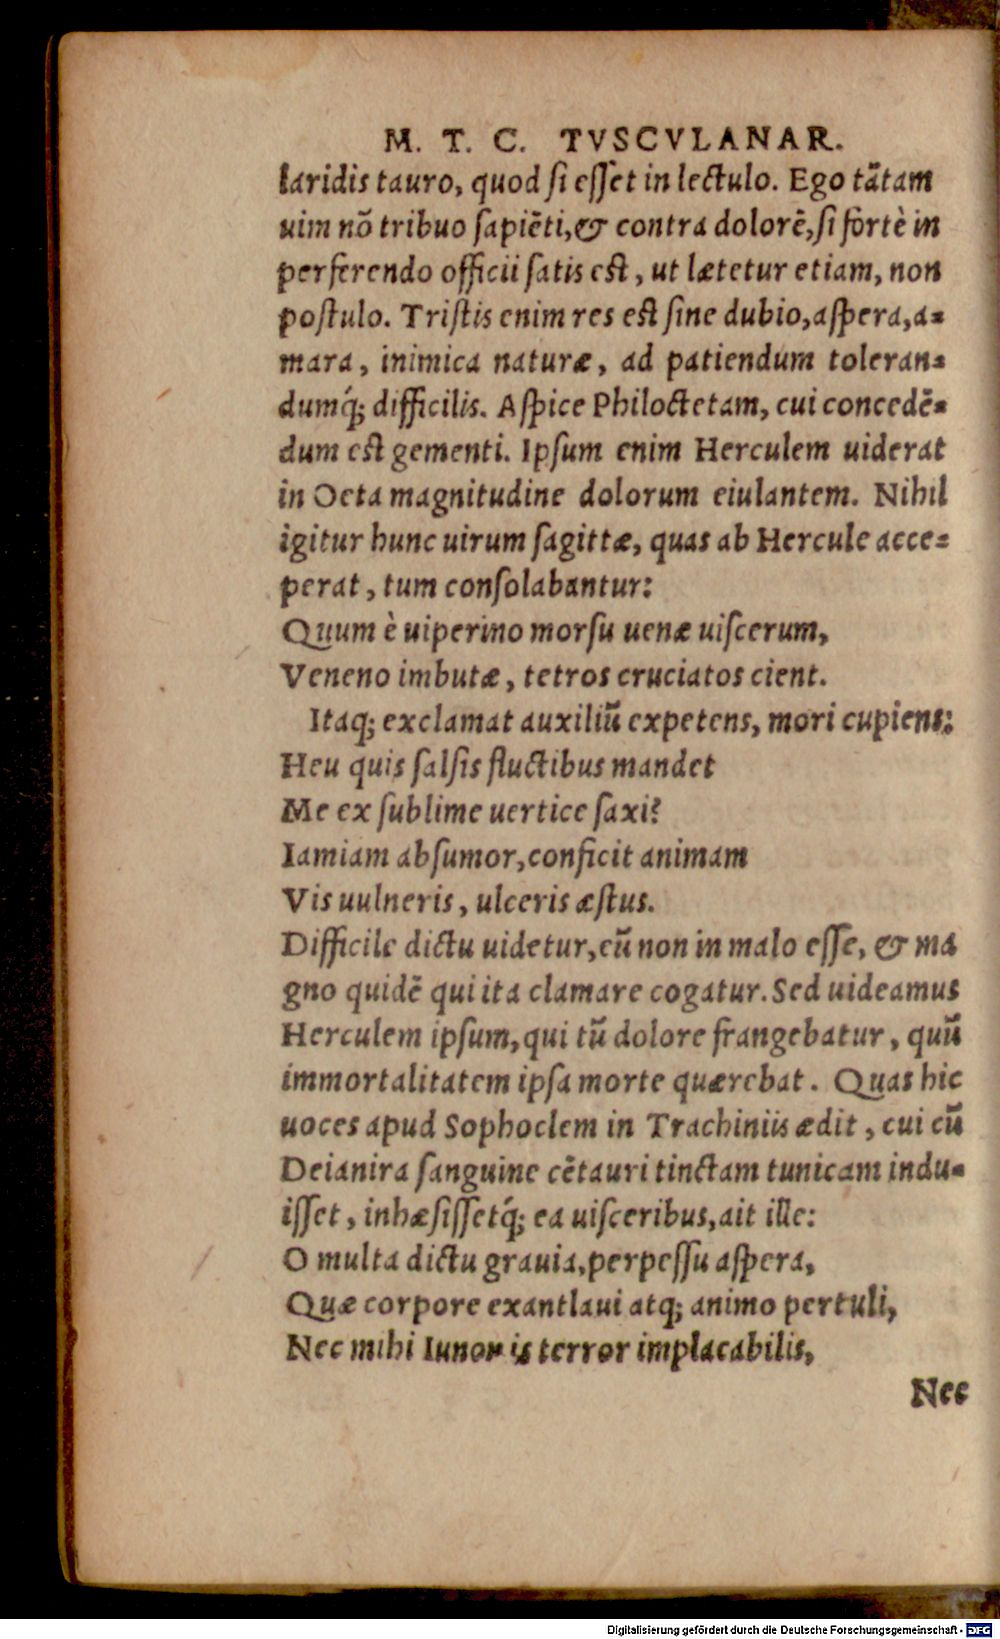 M. T. C. TVSCVLANAR.
laridis tauro, quod ſi eſſet in lectulo. Ego tãtam
uim nõ tribuo ſapiẽti, & contra dolorẽ, ſi fortè in
perferendo officii ſatis eſt, ut lætetur etiam, non
poſtulo. Triſtis enim res eſt ſine dubio, aſpera, a-
mara, inimica naturæ, ad patiendum toleran-
dumq́; difficilis. Aſpice Philoctetam, cui concedẽ-
dum eſt gementi. Ipſum enim Herculem uiderat
in Oeta magnitudine dolorum eiulantem. Nihil
igitur hunc uirum ſagittæ, quas ab Hercule acce-
perat, tum conſolabantur:
Quum è uiperino morſu uenæ uiſcerum,
Veneno imbutæ, tetros cruciatos cient.
Itaq; exclamat auxiliũ expetens, mori cupiens:
Heu quis ſalſis fluctibus mandet
Me ex ſublime uertice ſaxi?
Iamiam abſumor, conficit animam
Vis uulneris, ulceris æſtus.
Difficile dictu uidetur, eũ non in malo eſſe, & ma
gno quidẽ qui ita clamare cogatur. Sed uideamus
Herculem ipſum, qui tũ dolore frangebatur, quũ
immortalitatem ipſa morte quærebat. Quas hic
uoces apud Sophoclem in Trachiniis ædit, cui cũ
Deianira ſanguine cẽtauri tinctam tunicam indu-
iſſet, inhæſiſſetq́; ea uiſceribus, ait ille:
O multa dictu grauia, perpeſſu aſpera,
Quæ corpore exantlaui atq; animo pertuli,
Nec mihi Iunonis terror implacabilis,
Nec
Digitalisierung gefördert durch die Deutsche Forschungsgemeinschaft - DFG